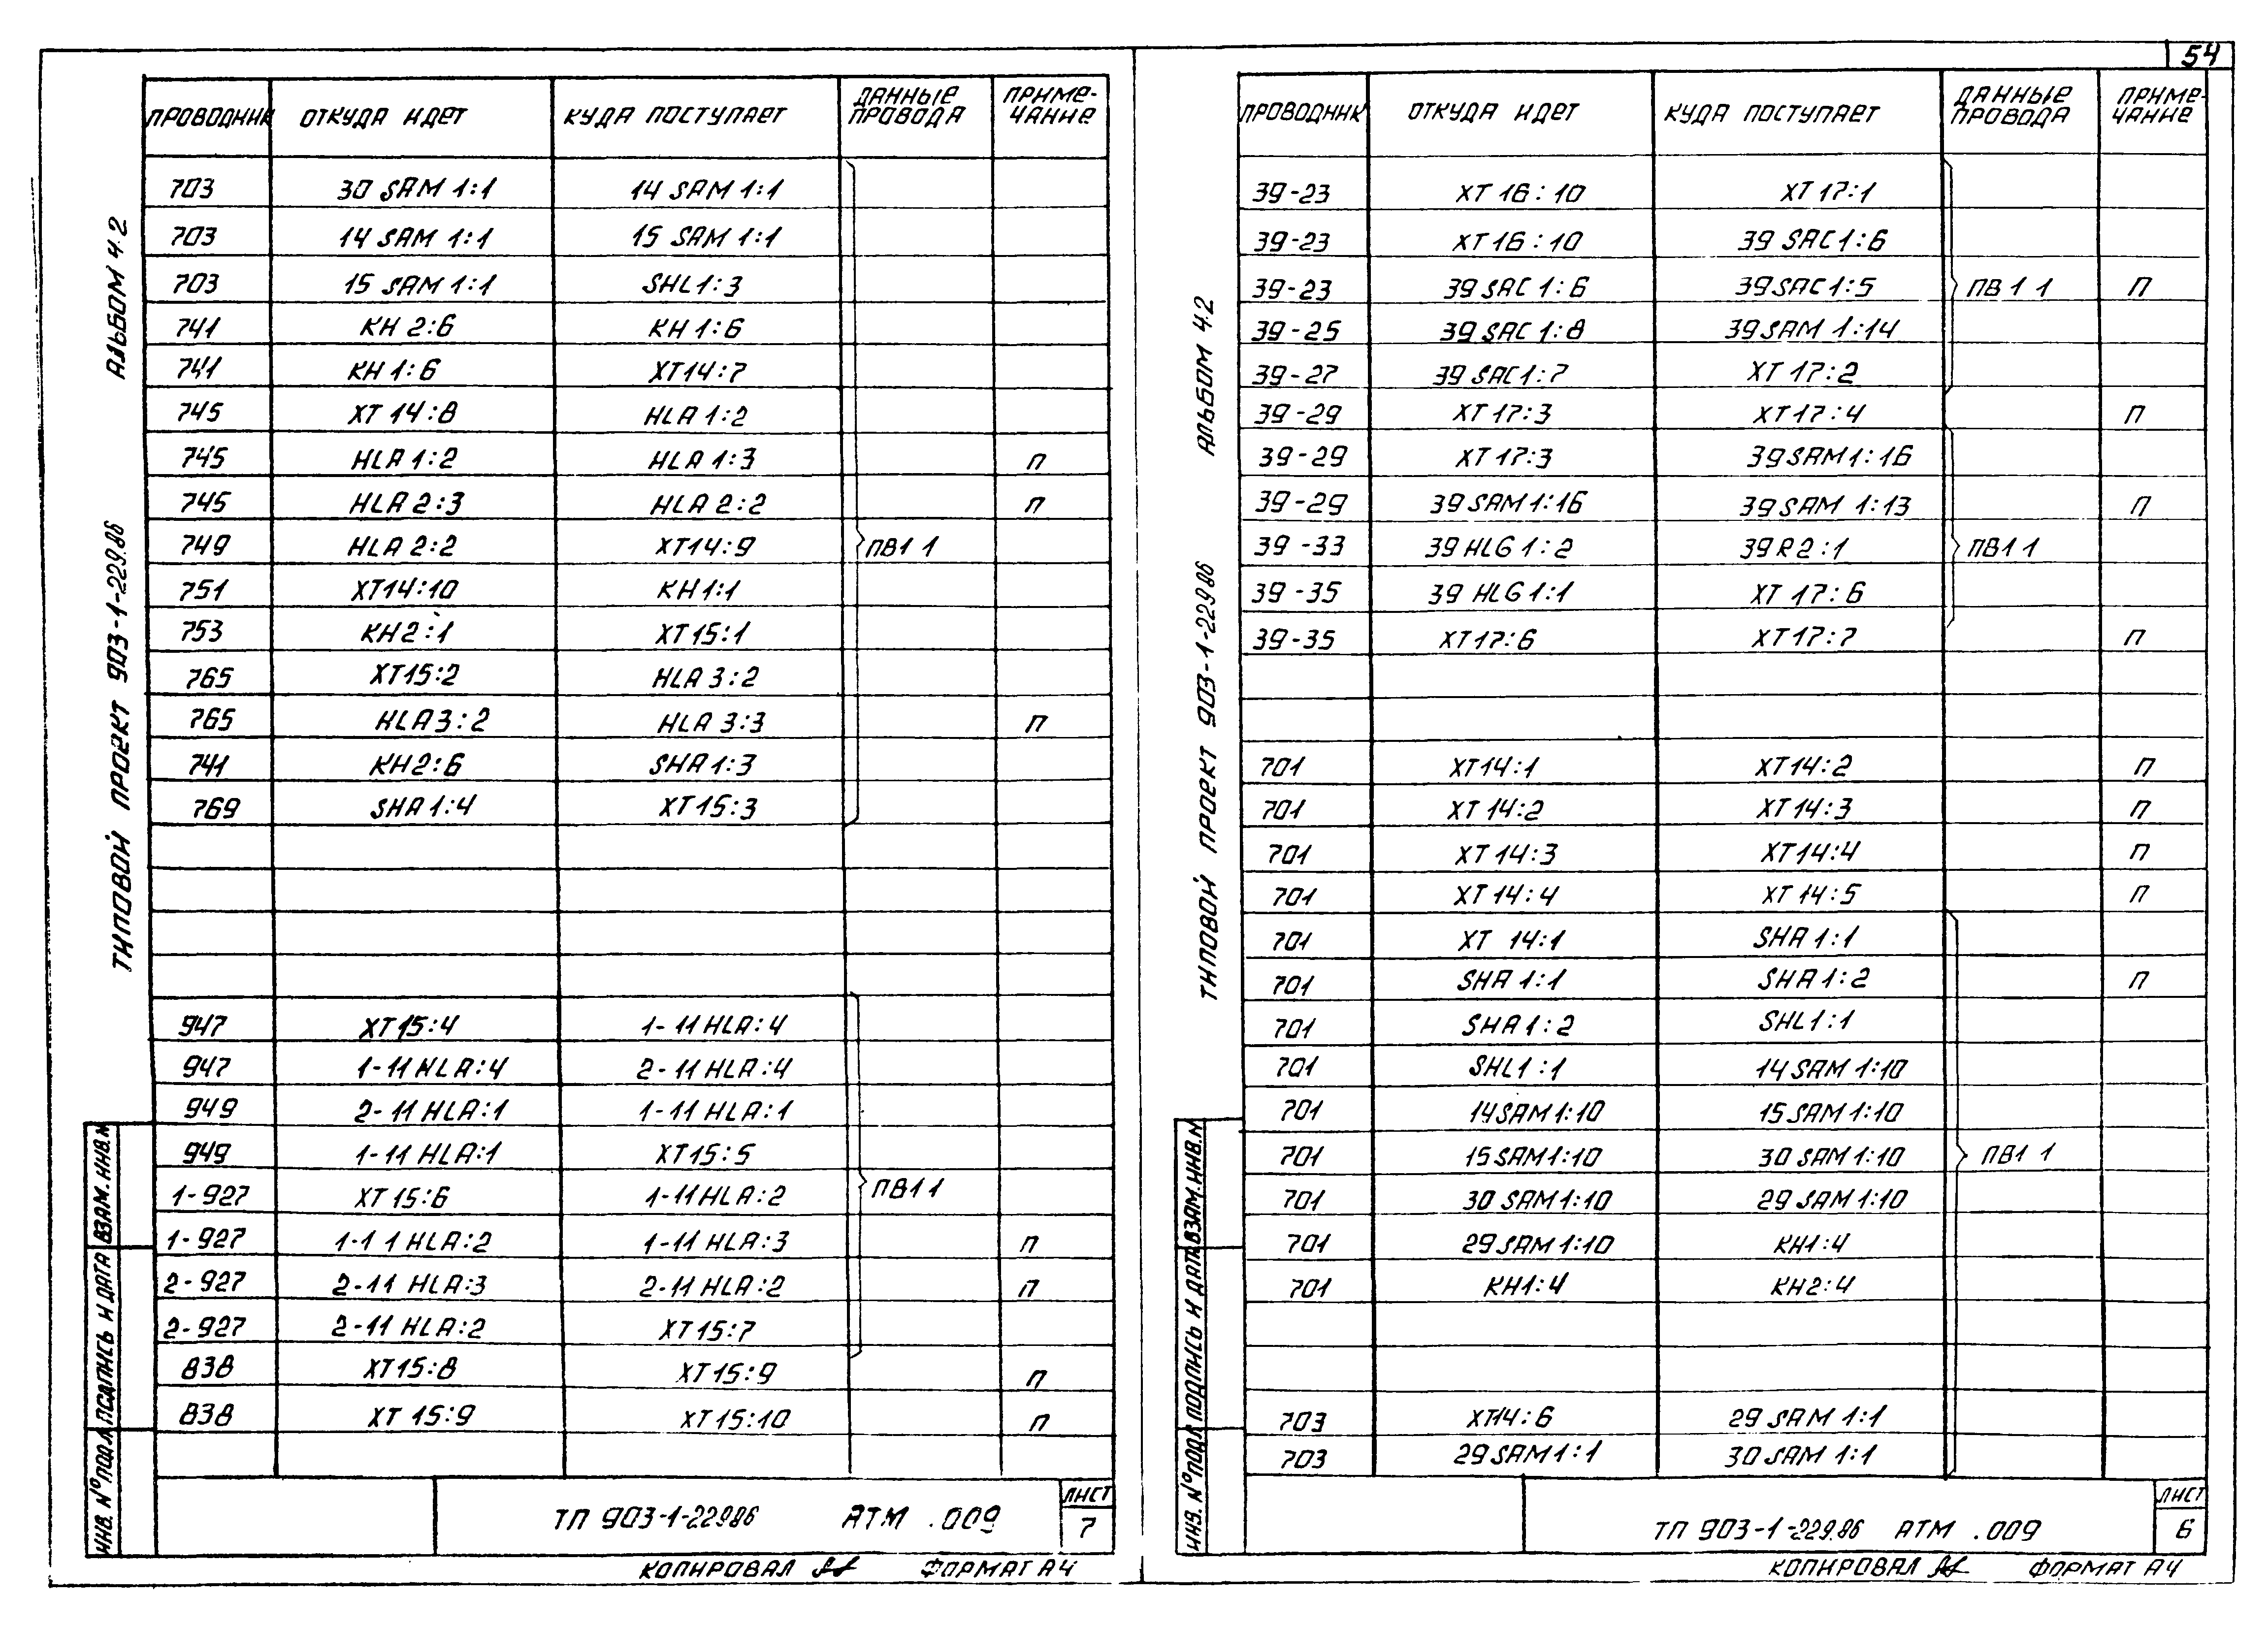 54
АЛЬБОМ 4.2
ТИПОВОЙ ПРОЕКТ 903-1-229.86
ПРОВОДНИК ОТКУДА ИДЕТ КУДА ПОСТУПАЕТ ДАННЫЕ ПРОВОДА ПРИМЕ-ЧАНИЕ
703 30 SAM 1:1 14 SAM 1:1
703 14 SAM 1:1 15 SAM 1:1
703 15 SAM 1:1 SHL 1:3
741 KH 2:6 KH 1:6
741 KH 1:6 XT14:7
745 XT 14:8 HLA 1:2
745 HLA 1:2 HLA 1:3 П
745 HLA 2:3 HLA 2:2 П
749 HLA 2:2 XT14:9 ПВ1 1
751 XT14:10 KH1:1
753 KH2:1 XT15:1
765 XT15:2 HLA 3:2
765 HLA3:2 HLA 3:3 П
741 KH2:6 SHA 1:3
769 SHA 1:4 XT15:3
947 XT15:4 1-11 HLA:4
947 1-11 HLA:4 2-11 HLA:4
949 2-11 HLA:1 1-11 HLA:1
949 1-11 HLA:1 XT15:5
1-927 XT 15:6 1-11 HLA:2 ПВ1 1
1-927 1-11 HLA:2 1-11 HLA:3 П
2-927 2-11 HLA:3 2-11 HLA:2 П
2-927 2-11 HLA:2 XT15:7
838 XT15:8 XT15:9 П
838 XT 15:9 XT15:10 П
ИНВ. № ПОДЛ. ПОДПИСЬ И ДАТА ВЗАМ. ИНВ. №
ТП 903-1-229.86 АТМ .009
ЛИСТ
7
КОПИРОВАЛ ФОРМАТ А4
АЛЬБОМ 4.2
ТИПОВОЙ ПРОЕКТ 903-1-229.86
ПРОВОДНИК ОТКУДА ИДЕТ КУДА ПОСТУПАЕТ ДАННЫЕ ПРОВОДА ПРИМЕ-ЧАНИЕ
39-23 XT 16:10 XT 17:1
39-23 XT16:10 39 SAC 1:6
39-23 39 SAC 1:6 39 SAC 1:5 ПВ 1 1 П
39-25 39 SAC 1:8 39 SAM 1:14
39-27 39 SAC 1:7 XT 17:2
39-29 XT 17:3 XT17:4 П
39-29 XT 17:3 39 SAM 1:16
39-29 39 SAM 1:16 39 SAM 1:13 П
39-33 39 HLG 1:2 39 R2:1 ПВ1 1
39-35 39 HLG 1:1 XT 17:6
39-35 XT17:6 XT17:7 П
701 XT14:1 XT14:2 П
701 XT 14:2 XT14:3 П
701 XT 14:3 XT14:4 П
701 XT 14:4 XT 14:5 П
701 XT 14:1 SHA 1:1
701 SHA 1:1 SHA 1:2 П
701 SHA 1:2 SHL1:1
701 SHL1:1 14 SAM 1:10
701 14SAM 1:10 15 SAM 1:10
701 15 SAM 1:10 30 SAM 1:10 ПВ1 1
701 30 SAM 1:10 29 SAM 1:10
701 29 SAM 1:10 KH1:4
701 KH1:4 KH2:4
703 XT14:6 29 SAM 1:1
703 29 SAM 1:1 30 SAM 1:1
ИНВ. № ПОДЛ. ПОДПИСЬ И ДАТА ВЗАМ. ИНВ. №
ТП 903-1-229.86 АТМ .009
ЛИСТ
6
КОПИРОВАЛ ФОРМАТ А4